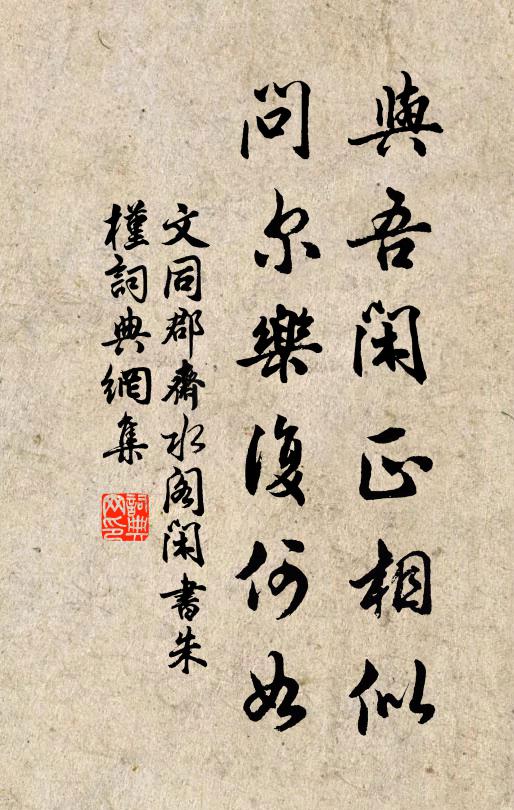 與吾閑正相似
問尔樂復何如
文同郡齋水閣閑書朱
槿詞典網集
詞典
网印